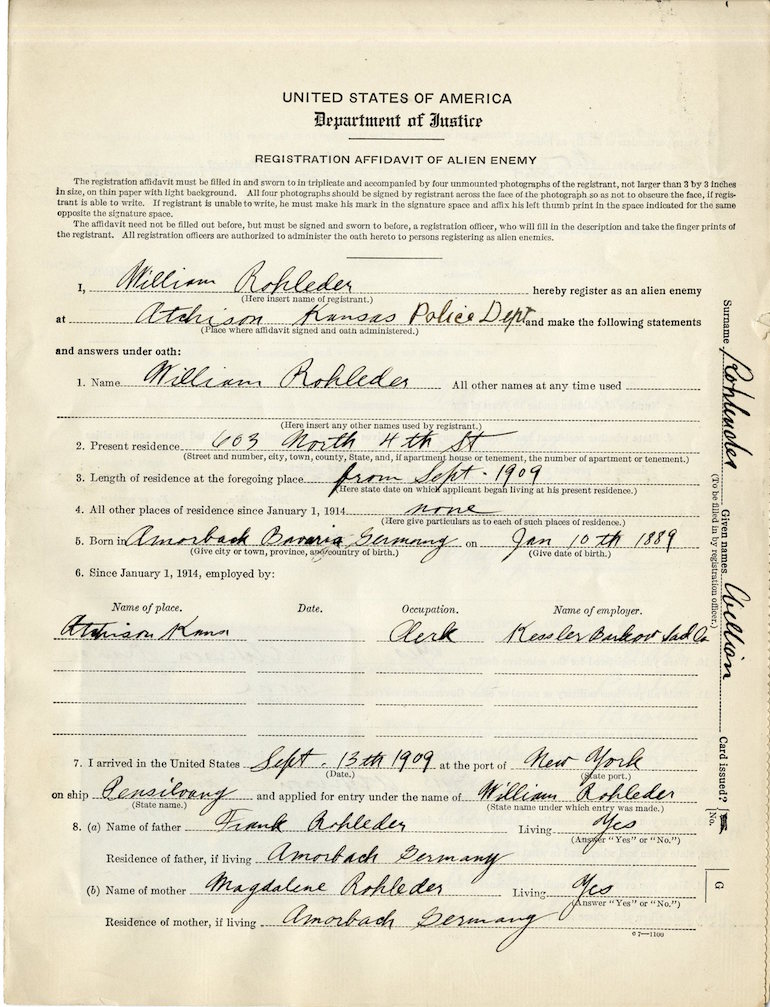 UNITED STATES OF AMERICA
Department of Justice
REGISTRATION AFFIDAVIT OF ALIEN ENEMY
The registration affidavit must be filled in and sworn to in triplicate and accompanied by four unmounted photographs of the registrant, not larger than 3 by 3 inches
in size, on thin paper with light background. All four photographs should be signed by registrant across the face of the photograph so as not to obscure the face, if regis-
trant is able to write. If registrant is unable to write, he must make his mark in the signature space and affix his left thumb print in the space indicated for the same
opposite the signature space.
The affidavit need not be filled out before, but must be signed and sworn to before, a registration officer, who will fill in the description and take the finger prints of
the registrant. All registration officers are authorized to administer the oath hereto to persons registering as alien enemies.
I, William Rohleder hereby register as an alien enemy
(Here insert name of registrant.)
at Atchison Kansas Police Dept and make the following statements
(Place where affidavit signed and oath administered.)
and answers under oath:
1. Name William Rohleder All other names at any time used
(Here insert any other names used by registrant.)
2. Present residence 603 North 4th St
(Street and number, city, town, county, State, and, if apartment house or tenement, the number of apartment or tenement.)
3. Length of residence at the foregoing place from Sept. 1909
(Here state date on which applicant began living at his present residence.)
4. All other places of residence since January 1, 1914 none
(Here give particulars as to each of such places of residence.)
5. Born in Amorback Bavaria, Germany on Jan 10th 1889
(Give city or town, province, and country of birth.) (Give date of birth.)
6. Since January 1, 1914, employed by:
Name of place. Date. Occupation. Name of employer.
Atchison Kans Clerk Kessler Barkow Sad Co
7. I arrived in the United States Sept. 13th 1909 at the port of New York
(Date.) (State port.)
on ship Pensilvany and applied for entry under the name of William Rohleder
(State name.) (State name under which entry was made.)
8. (a) Name of father Frank Rohleder Living Yes
(Answer "Yes" or "No.")
Residence of father, if living Amorbach Germany
(b) Name of mother Magdalene Rohleder Living Yes
(Answer "Yes" or "No.")
Residence of mother, if living Amorbach Germany
67—1100
Surname Rohleder Given names William Card issued? No.
(To be filled in by registration officer.)
G